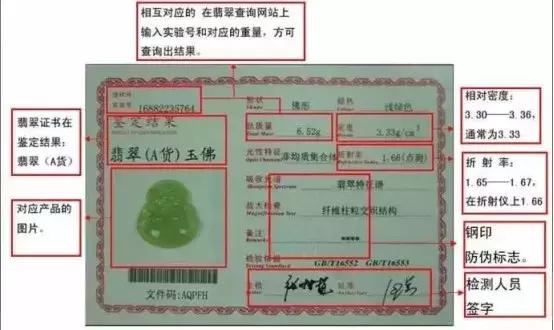 相互对应的 在翡翠查询网站上
输入实验号和对应的重量,方可
查询出结果。
翡翠证书在
鉴定结果:
翡翠(A货)
对应产品的
图片。
16882235764
鉴定结果
翡翠(A货)玉佛
文件码:AQPFH
形状
佛形
颜色
浅绿色
总质量
6.52g
密度
3.33g/cm³
光性特征
非均质集合体
折射率
1.66(点测)
吸收光谱
翡翠特征谱
放大检查
纤维柱粒交织结构
备注
检验依据
GB/T16552 GB/T16553
主检
批准
相对密度:
3.30—3.36,
通常为3.33
折 射 率:
1.65—1.67,
在折射仪上1.66
钢印
防伪标志。
检测人员
签字